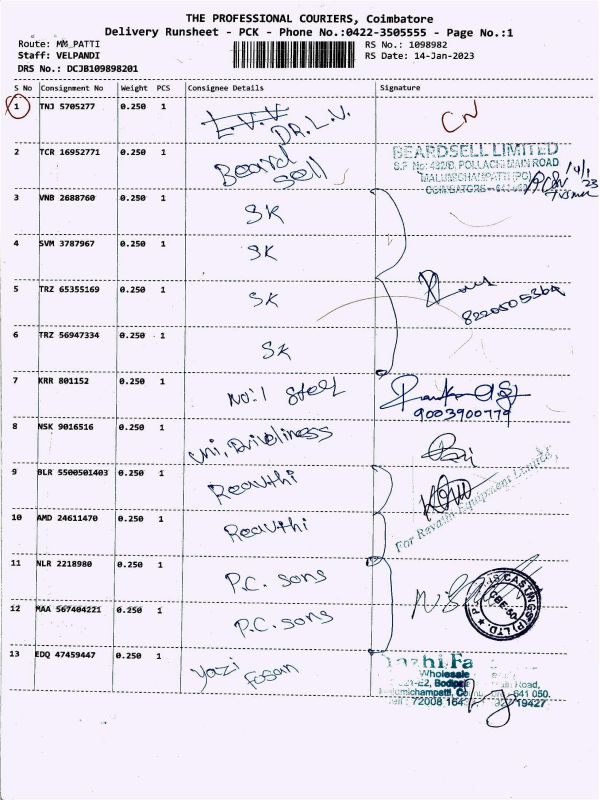 THE PROFESSIONAL COURIERS, Coimbatore
Delivery Runsheet - PCK - Phone No.:0422-3505555 - Page No.:1
Route: MM_PATTI
RS No.: 1098982
Staff: VELPANDI
RS Date: 14-Jan-2023
DRS No.: DCJB109898201
S No Consignment No Weight PCS Consignee Details Signature
1 TNJ 5705277 0.250 1 L.V.V DR.L.V. CN
2 TCR 16952771 0.250 1 Beard sell
BEARDSELL LIMITED
S.F No: 432/B, POLLACHI MAIN ROAD
MALUMICHAMPATTI (PO)
COIMBATORE
14/1/23
3 VNB 2688760 0.250 1 SK
4 SVM 3787967 0.250 1 SK
5 TRZ 65355169 0.250 1 SK
8220505369
6 TRZ 56947334 0.250 1 SK
7 KRR 801152 0.250 1 No:1 Steel
9003900779
8 NSK 9016516 0.250 1 Uni, Driveliness
9 BLR 5500501403 0.250 1 Reavthi
For Revathi Equipment Limited,
10 AMD 24611470 0.250 1 Reavthi
11 NLR 2218980 0.250 1 P.C. sons
CASTINGS (P) LTD.
CBE-50
12 MAA 567404221 0.250 1 P.C. sons
13 EDQ 47459447 0.250 1 yazi Fasan
azhi Fa
Wholesale
Road,
641 050.
72008 164
19427